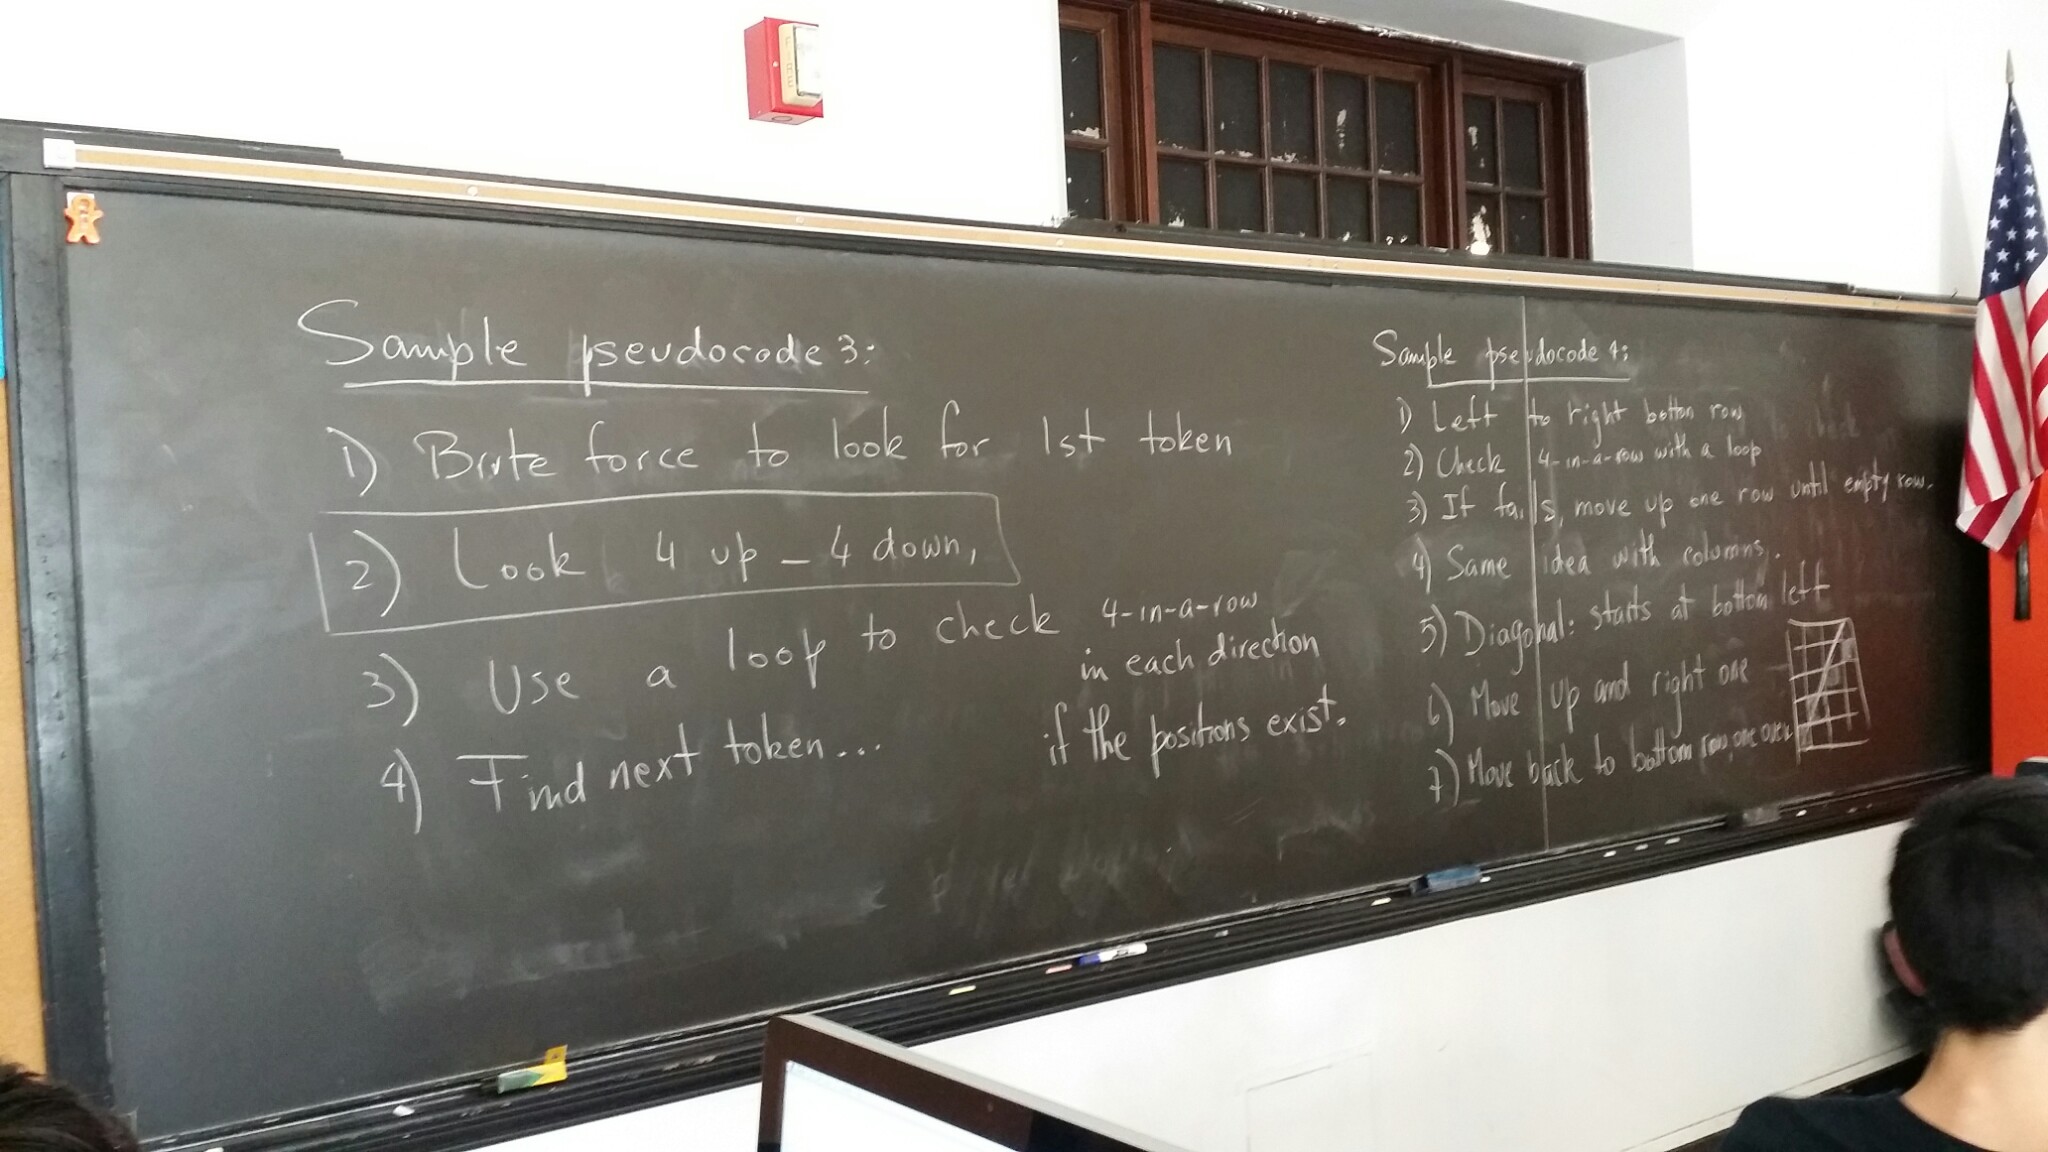 FIRE
Sample pseudocode 3:
1) Brute force to look for 1st token
2) Look 4 up - 4 down,
3) Use a loop to check 4-in-a-row
in each direction
if the positions exist.
4) Find next token...
Sample pseudocode 4:
1) Left to right bottom row
2) Check 4-in-a-row with a loop
3) If fails, move up one row until empty row.
4) Same idea with columns.
5) Diagonal: starts at bottom left
6) Move up and right one
7) Move back to bottom row, one over